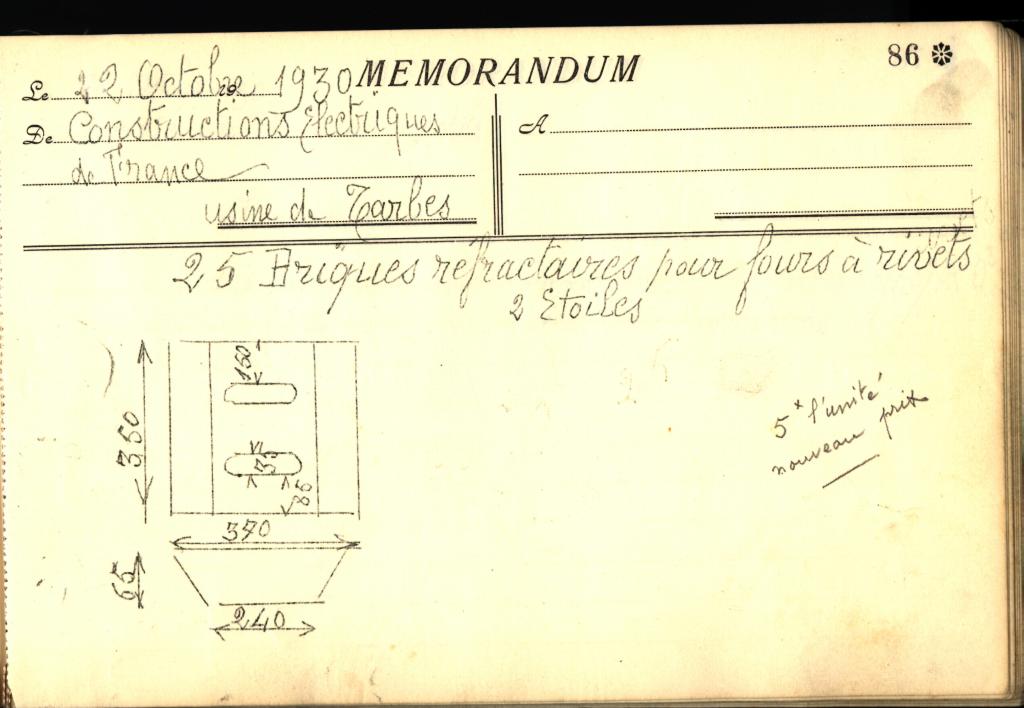 MEMORANDUM
86
Le 22 Octobre 1930
De Constructions Electriques
de France
usine de Tarbes
A
25 Briques réfractaires pour fours à rivets
2 Etoiles
150
350
35
85
370
65
240
5 x l'unité
nouveau prix